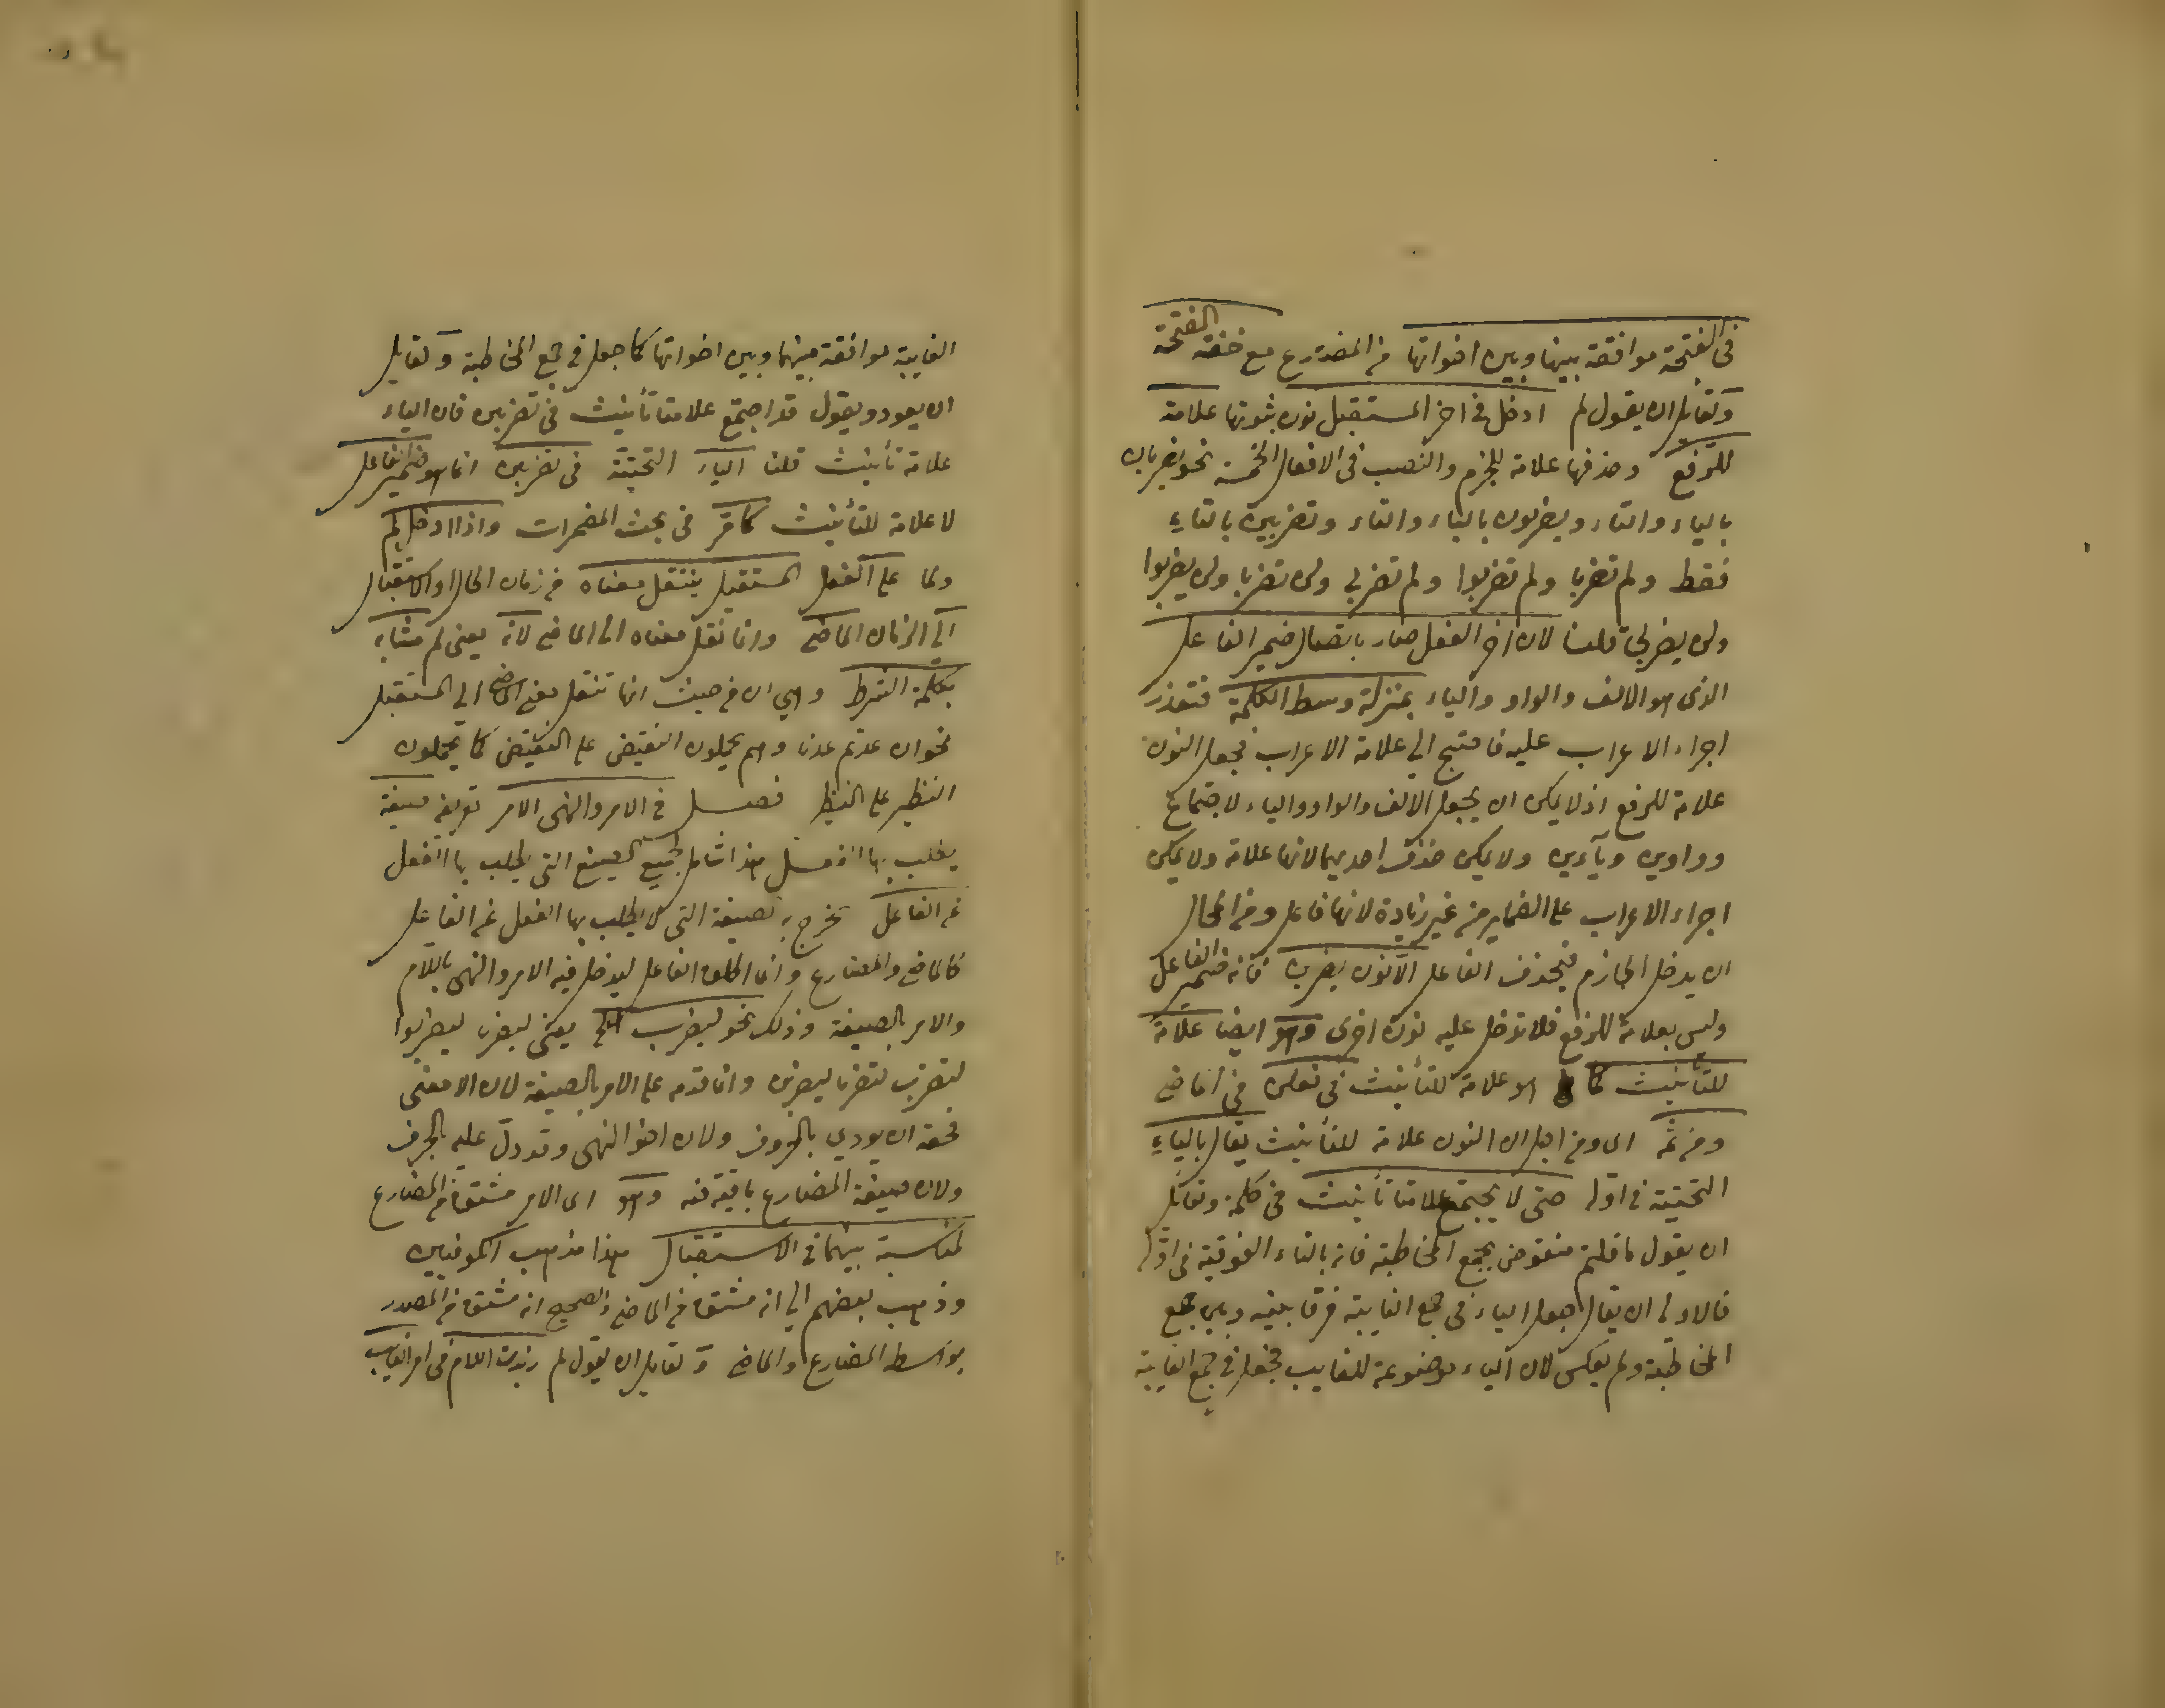 في الفتحة موافقة بينها وبين اخواتها من المضارع مع خفة الفتحة
ولقايل ان يقول لم ادخل في اخر المستقبل نون ثبوتها علامة
للرفع وحذفها علامة للجزم والنصب في الافعال الخمسة نحو يضربان
بالياء والتاء ويضربون بالياء والتاء وتضربين بالتاء
فقط ولم تضربا ولم تضربوا ولم تضربي ولن تضربا ولن يضربوا
ولن يضربي قلنا لان اخر الفعل صار باتصال ضمير الفاعل
الذي هو الالف والواو والياء بمنزلة وسط الكلمة فتعذر
اجراء الاعراب عليه فاحتيج الي علامة الاعراب فجعل النون
علامة للرفع اذ لا يمكن ان يجعل الالف والواو والياء لاجتماع
وواوين ويآءين ولا يمكن حذف احديهما لانها علامة ولا يمكن
اجراء الاعراب على الضماير من غير زيادة لانها فاعل ومن المحال
ان يدخل الجازم فيحذف الفاعل الا نون يضربن فانه ضمير الفاعل
وليس بعلامة للرفع فلا تدخل عليه نون اخرى وهو ايضا علامة
للتأنيث كما هو علامة للتأنيث في فعلن في الماضي
ومن ثمه اي ومن اجل ان النون علامة للتأنيث يقال بالياء
التحتية في اوله حتى لا يجتمع علامتا تأنيث في كلمة ولقائل
ان يقول ما قلتم منقوض بجمع المخاطبة فانه بالتاء الفوقية في اوله
فالاولى ان يقال جعل الياء في جمع الغايبة فرقا بينه وبين جمع
المخاطبة ولم يعكس لان الياء موضوعة للغايب فجعل في جمع الغايبة
الغايبة موافقة بينهما وبين اخواتها كما جعل في جمع المخاطبة ولقايل
ان يعود ويقول قد اجتمع علامتا تأنيث في تضربين فان الياء
علامة تأنيث قلنا الياء التحتية في تضربين انما هو ضمير الفاعل
لا علامة للتأنيث كما مر في بحث المضمرات واذا ادخل لم
ولما على الفعل المستقبل ينتقل معناه من زمان الحال او الاستقبال
الي الزمان الماضي وانما نقل معناه الى الماضي لانه يعني لم مشابه
بكلمة الشرط وهي ان من حيث انها تنقل معنى الماضي الي المستقبل
نحو ان عدتم عدنا وهم يحملون النقيض على النقيض كما يحملون
النظير على النظير فصل في الامر والنهي الامر تعريفه صيغة
يطلب بها الفعل هذا شامل لجميع الصيغ التي يطلب بها الفعل
عن الفاعل يخرج به الصيغة التي لا يطلب بها الفعل عن الفاعل
كالماضي والمضارع وانما اطلق الفاعل ليدخل فيه الامر والنهي باللام
والامر بالصيغة وذلك نحو ليضرب الخ يعني ليضربا ليضربوا
لتضرب لتضربا ليضربن وانما قدمه على الامر بالصيغة لان الامر معنى
فحقه ان يودي بالحروف ولان اخو النهي وقد دل عليه بالحرف
ولان صيغة المضارع باقية فيه وهو اي الامر مشتق من المضارع
لمناسبة بينهما في الاستقبال هذا مذهب الكوفيين
وذهب بعضهم الي انه مشتق من الماضي والصحيح انه مشتق من المصدر
بواسط المضارع والماضي ولقايل ان يقول لم زيدت اللام في امر الغايب